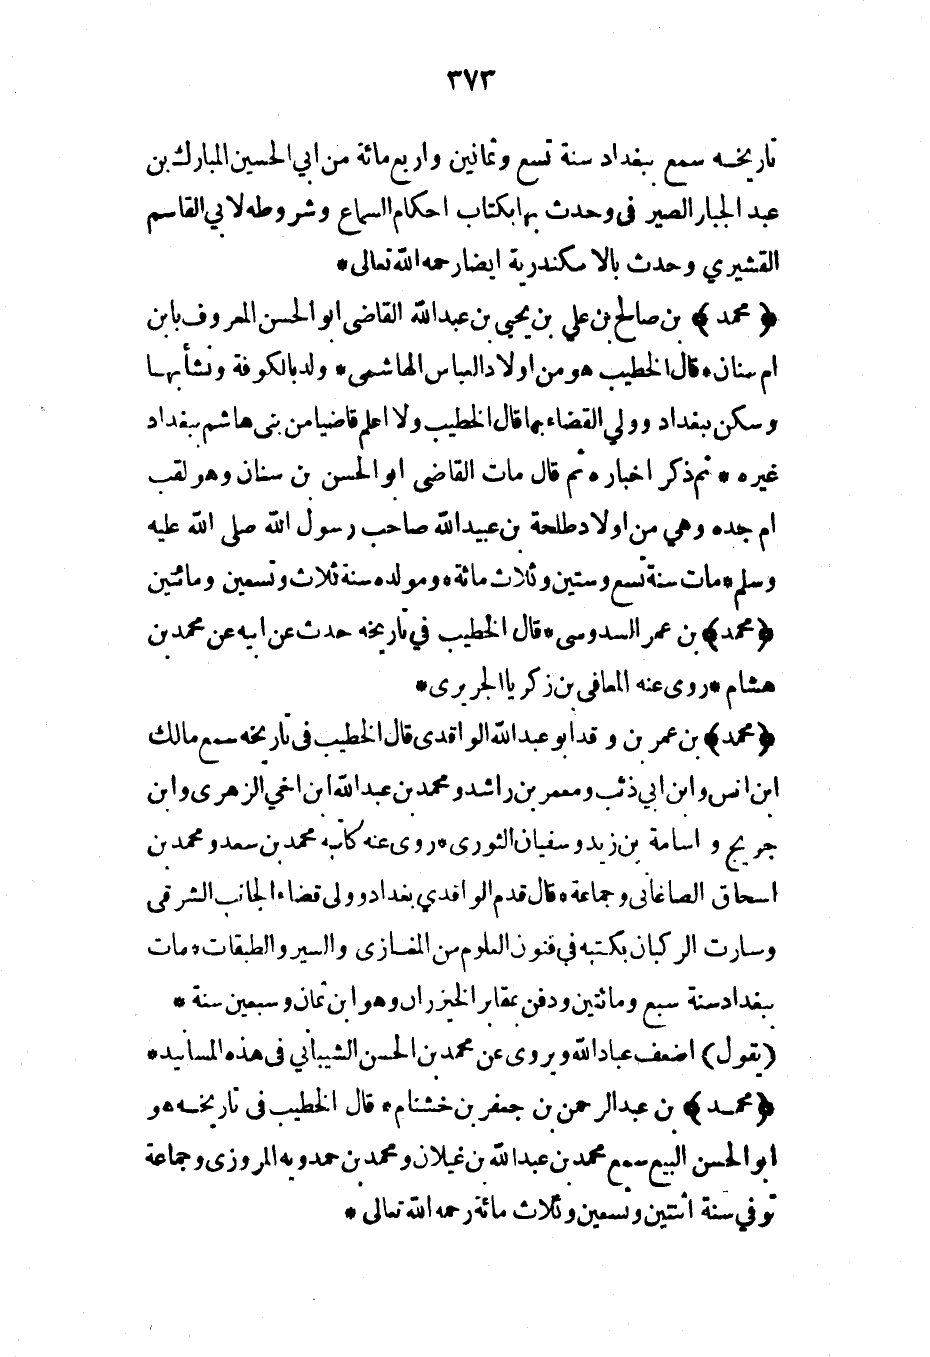 ٣٧٣
تاريخه سمع ببغداد سنة تسع وثمانين واربع مائة من ابي الحسين المبارك بن
عبد الجبار الصيرفى وحدث بها بكتاب احكام السماع وشروطه لابي القاسم
القشيري وحدث بالاسكندرية ايضا رحمه الله تعالى *
﴿ محمد ﴾ بن صالح بن علي بن يحيى بن عبدالله القاضى ابو الحسن المعروف بابن
ام سنان * قال الخطيب هو من اولاد العباس الهاشمى * ولد بالكوفة ونشأ بها
وسكن ببغداد وولي القضاء بها قال الخطيب ولا اعلم قاضيا من بنى هاشم ببغداد
غيره * ثم ذكر اخباره ثم قال مات القاضى ابو الحسن بن سنان وهو لقب
ام جده وهي من اولاد طلحة بن عبيدالله صاحب رسول الله صلى الله عليه
وسلم * مات سنة تسع وستين وثلاث مائة * ومولده سنة ثلاث وتسعين ومائتين
﴿محمد﴾ بن عمر السدوسى * قال الخطيب في تاريخه حدث عن ابيه عن محمد بن
هشام * روى عنه المعافى بن زكريا الجريرى *
﴿محمد﴾ بن عمر بن واقد ابو عبدالله الواقدى قال الخطيب فى تاريخه سمع مالك
ابن انس وابن ابي ذئب ومعمر بن راشد ومحمد بن عبدالله ابن اخي الزهرى وابن
جريج و اسامة بن زيد وسفيان الثورى * روى عنه كاتبه محمد بن سعد ومحمد بن
اسحاق الصاغانى وجماعة * قال قدم الواقدي بغداد وولى قضاء الجانب الشرقى
وسارت الركبان بكتبه في فنون العلوم من المغازى والسير والطبقات * مات
ببغداد سنة سبع ومائتين ودفن بمقابر الخيزران وهو ابن ثمان وسبعين سنة *
(يقول) اضعف عباد الله ويروى عن محمد بن الحسن الشيباني فى هذه المسانيد *
﴿محمد﴾ بن عبدالرحمن بن جعفر بن خشنام * قال الخطيب فى تاريخه هو
ابو الحسن البيع سمع محمد بن عبدالله بن غيلان ومحمد بن حمدويه المروزى وجماعة
توفي سنة اثنتين وتسعين وثلاث مائة رحمه الله تعالى *